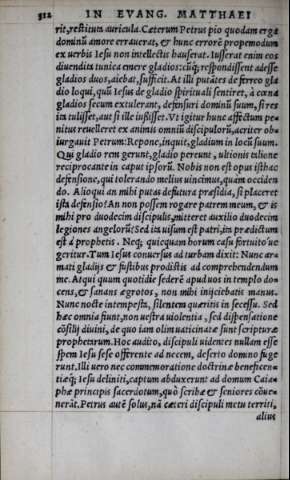 312 IN EVANG. MATTHAEI
rit, restituta auricula. Cæterum Petrus pio quodam erga
dominũ amore erraverat, & hunc errorẽ propemodum
ex verbis Iesu non intellectis hauserat. Iusserat enim eos
diuendita tunica emere gladios: cũq; respondissent adesse
gladios duos, aiebat, sufficit. At illi putãtes de ferreo gla
dio loqui, quũ Iesus de gladio spirituali sentiret, à cœna
gladios secum extulerant, defensuri dominũ suum, si res
ita tulisset, aut si ille iussisset. Vt igitur hunc affectum pe=
nitus reuelleret ex animis omniũ discipulorũ, acriter ob=
iurgauit Petrum: Repone, inquit, gladium in locũ suum.
Qui gladio rem gerunt, gladio pereunt, ultionis talione
reciprocante in caput ipsorũ. Nobis non est opus isthac
defensione, qui tolerando melius uincimus, quàm occiden
do. Alioqui an mihi putas defutura præsidia, si placeret
ista defensio? An non possem rogare patrem meum, & is
mihi pro duodecim discipulis, mitteret auxilio duodecim
legiones angelorũ? Sed ita uisum est patri, ita prædictum
est à prophetis. Neq; quicquam horum casu fortuito ue
geritur. Tum Iesus conuersus ad turbam dixit: Nunc ar=
mati gladijs & fustibus prodistis ad comprehendendum
me. Atqui quum quotidie federẽ apud uos in templo do=
cens, & sanans ægrotos, non mihi inijciebatis manus.
Nunc nocte intempesta, silentem quæritis in secessu. Sed
hæc omnia fiunt, non uestra uiolentia, sed dispensatione
cõsilij diuini, de quo iam olim uaticinatæ sunt scripturæ
prophetarum. Hoc audito, discipuli uidentes nullam esse
spem Iesu sese offerente ad necem, deserto domino fuge
runt. Illi uero nec commemoratione doctrinæ beneficen=
tiæq; Iesu deliniti, captum abduxerunt ad domum Caia=
phæ principis sacerdotum, quò scribæ & seniores cõue=
nerãt. Petrus autẽ solus, nã cæteri discipuli metu territi,
alius